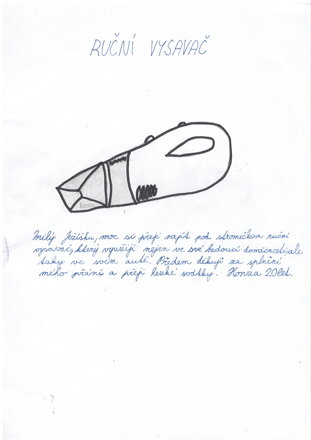 RUČNÍ VYSAVAČ
Milý Ježíšku, moc si přeji najít pod stromečkem ruční
vysavač, který využiji nejen ve své budoucí domácnosti, ale
taky ve svém autě. Předem děkuji za splnění
mého přání a přeji hezké svátky. Honza 20let.